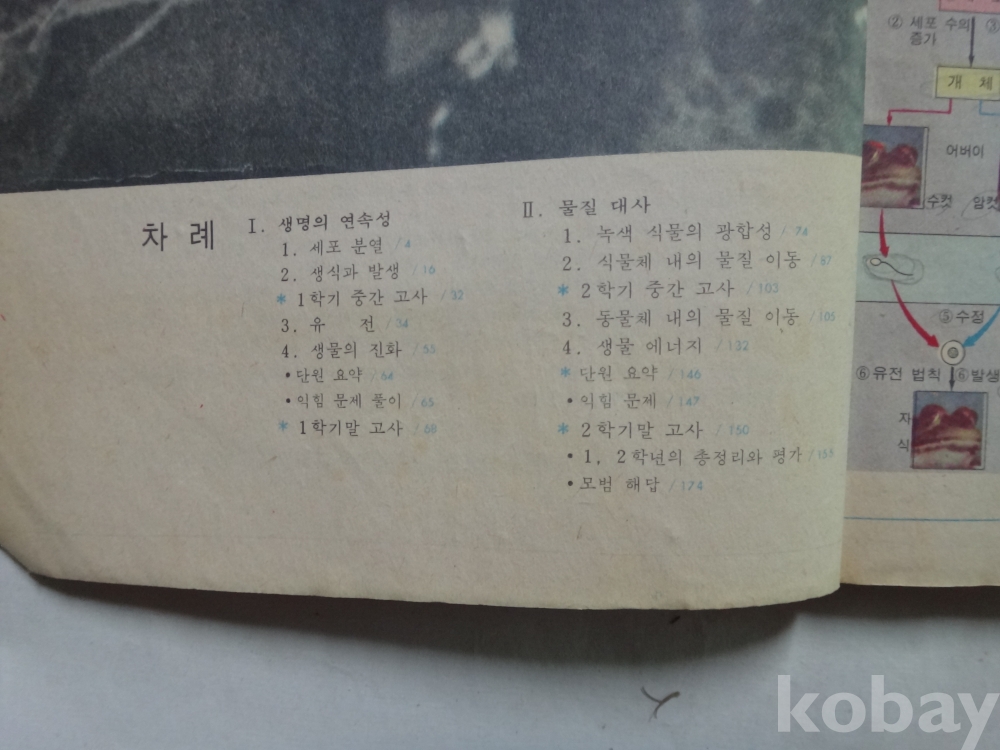 차 례
I. 생명의 연속성
1. 세포 분열 / 4
2. 생식과 발생 / 16
* 1학기 중간 고사 / 32
3. 유 전 / 34
4. 생물의 진화 / 55
• 단원 요약 / 64
• 익힘 문제 풀이 / 65
* 1학기말 고사 / 68
II. 물질 대사
1. 녹색 식물의 광합성 / 74
2. 식물체 내의 물질 이동 / 87
* 2학기 중간 고사 / 103
3. 동물체 내의 물질 이동 / 105
4. 생물 에너지 / 132
* 단원 요약 / 146
• 익힘 문제 / 147
* 2학기말 고사 / 150
• 1, 2학년의 총정리와 평가 / 155
• 모범 해답 / 174
② 세포 수의 ③
증가
개 체
어버이
수컷 암컷
⑤ 수정
⑥ 유전 법칙 ⑥ 발생
자
식
kobay